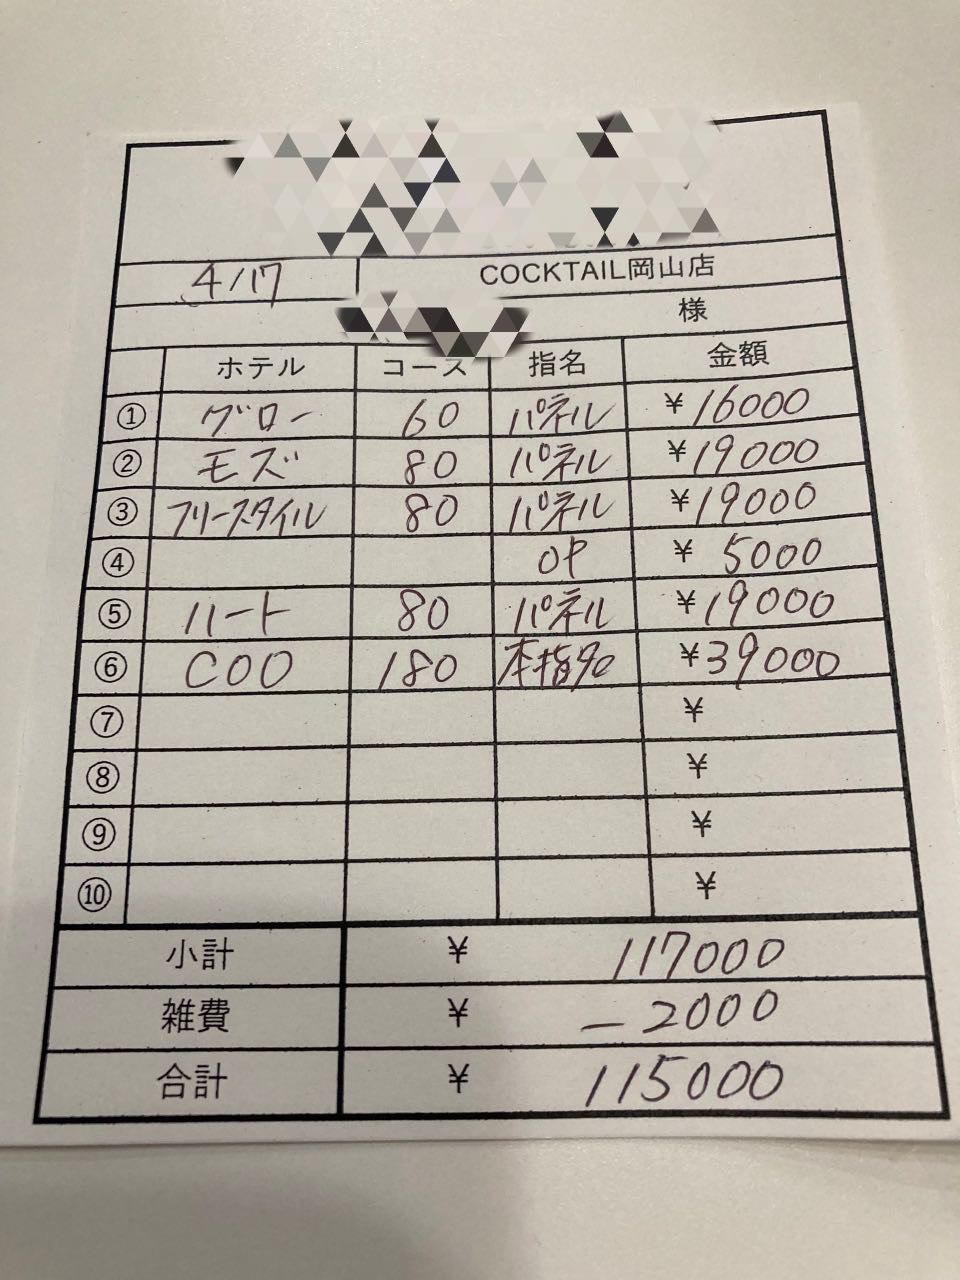 4/17 COCKTAIL岡山店
様
ホテル コース 指名 金額
① グロー 60 パネル ¥16000
② モズ 80 パネル ¥19000
③ フリースタイル 80 パネル ¥19000
④ OP ¥5000
⑤ ハート 80 パネル ¥19000
⑥ COO 180 本指名 ¥39000
⑦ ¥
⑧ ¥
⑨ ¥
⑩ ¥
小計 ¥ 117000
雑費 ¥ -2000
合計 ¥ 115000